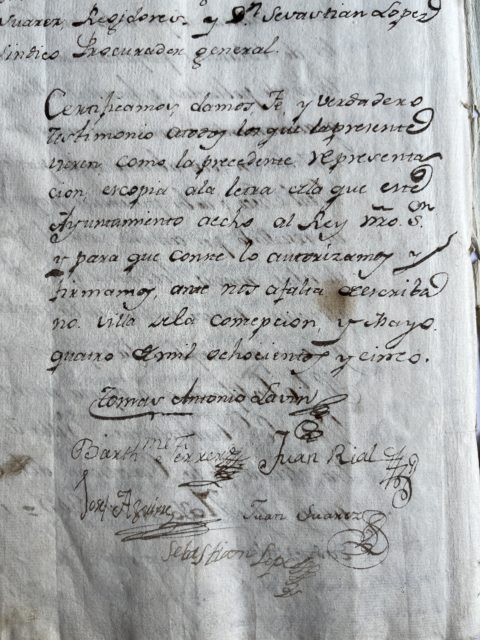 Suarez, Regidores, y Dn. Sevastian Loped
Sindico Procurador general.
Certificamos, damos Fe, y verdadero
testimonio atodos los que lapresente
vieren, como la precedente representa
cion, escopia ala letra dela que este
Ayuntamiento aecho al Rey Nro. Sr.
y para que conste lo autorizamos y
firmamos, ante nos afalta deescriba
no. Villa dela Comcepcion, y Mayo
quatro demil ochocientos y cinco.
Tomas Antonio Lavin
Barthme Ferrer Juan Rial
Josef Aguirre Juan Suarez
Sebastian Lopez